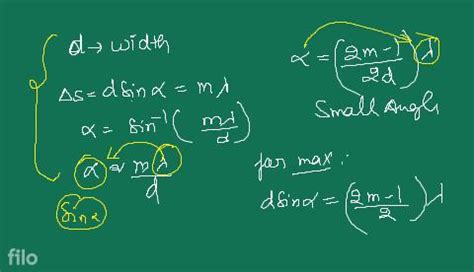 d → width
Δs = d sin α = mλ
α = sin⁻¹ (mλ/d)
α ≈ mλ/d
sin α
α = ((2m-1)/2d) λ
Small Angle
for max :
d sin α = ((2m-1)/2) λ
filo